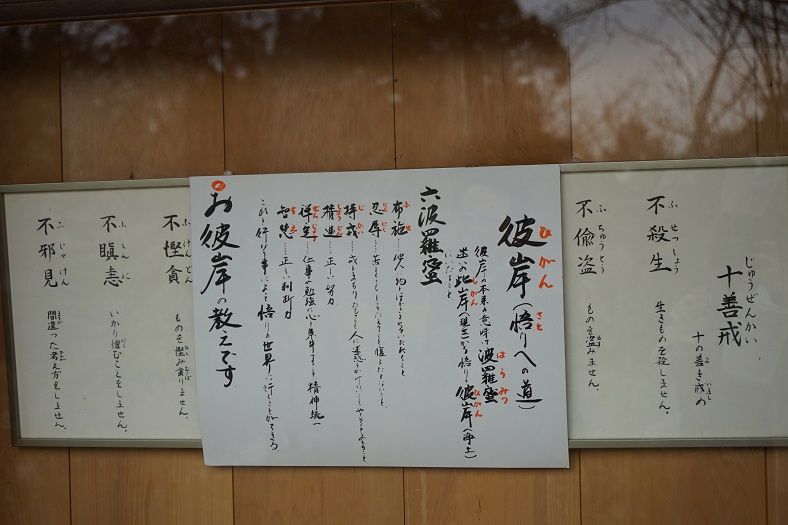 十善戒
じゅうぜんかい
十の善き戒め
不殺生
ふせっしょう
生きものを殺しません。
不偸盗
ふちゅうとう
ものを盗みません。
彼岸（悟りへの道）
ひがん さと
彼岸の本来の意味は波羅蜜
はらみつ
迷いの此岸（現世）から悟り彼岸（浄土）
しがん ひがん
六波羅蜜
布施
ふせ
忍辱
持戒
じかい
精進……正しい努力
禅定……仁事や勉強に心を集中すること精神統一
智慧……正しい判断力
ちえ
これを行じる事によって悟りの世界に行くことができる
お彼岸の教えです
不慳貪
ふけんどん
ものを慳み貪りません。
不瞋恚
ふしんに
いかり憎むことをしません。
不邪見
ふじゃけん
間違った考え方をしません。